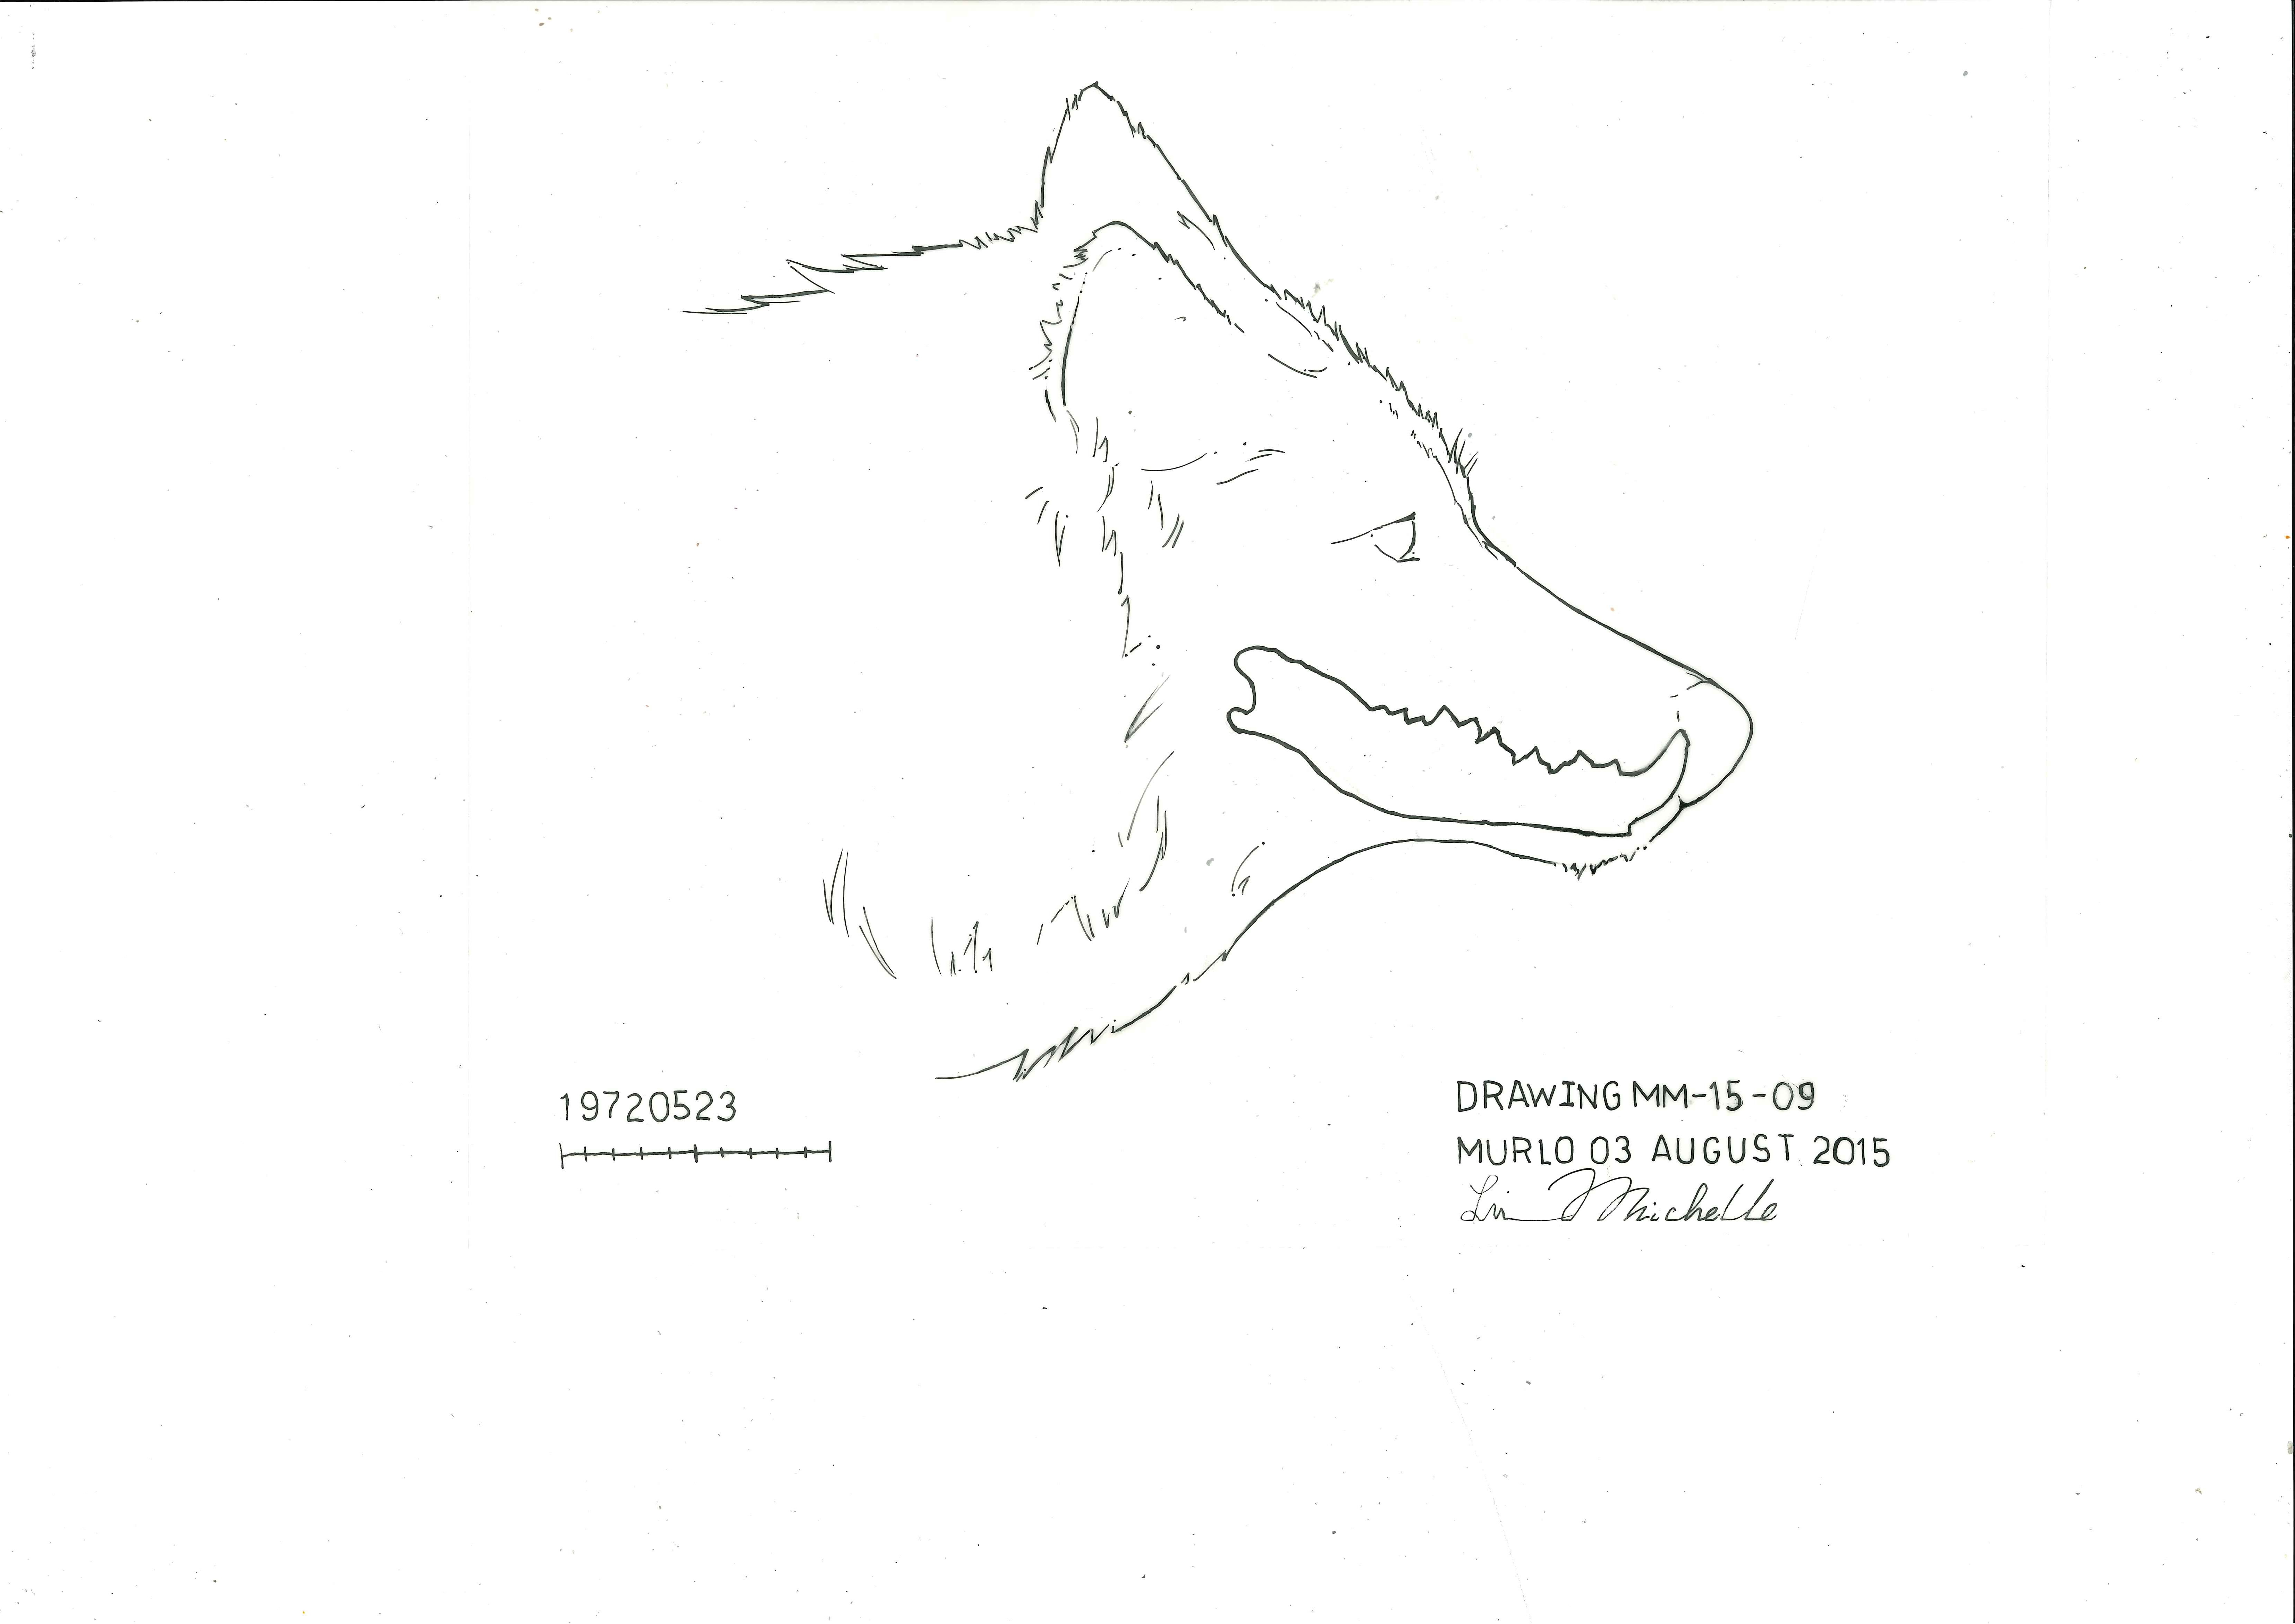 19720523
DRAWING MM-15-09
MURLO 03 AUGUST 2015
Michelle